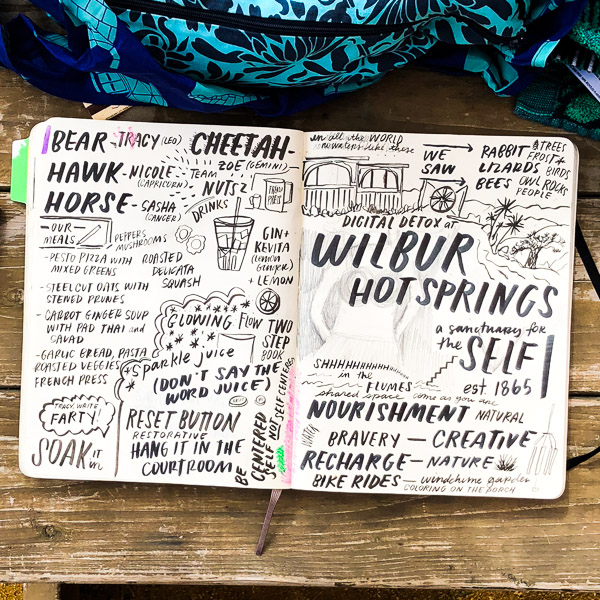 BEAR - TRACY (LEO)
CHEETAH -
ZOE (GEMINI)
HAWK - NICOLE -
(CAPRICORN)
TEAM
NUTSZ
HORSE - SASHA
(CANCER)
DRINKS
FRENCH
PRESS
- OUR -
MEALS
PEPPERS
MUSHROOMS
- PESTO PIZZA WITH
MIXED GREENS
ROASTED
DELICATA
SQUASH
GIN +
KEVITA
(LEMON
GINGER)
+ LEMON
- STEEL CUT OATS WITH
STEWED PRUNES
- CARROT GINGER SOUP
WITH PAD THAI and
SALAD
- GARLIC BREAD, PASTA
ROASTED VEGGIES
FRENCH PRESS
GLOWING
FLOW
TWO
STEP
BOOK
Sparkle juice
(DON'T SAY THE
WORD JUICE)
TRACY, WRITE
FARTY!
SOAK it in
RESET BUTTON
RESTORATIVE
HANG IT IN THE
COURTROOM
BE
CENTERED
SELF
NOT SELF CENTERED
in all the WORLD
no waters like these
WE
SAW
RABBIT
LIZARDS
BEES
& TREES
FROST +
BIRDS
OWL ROCKS
PEOPLE
DIGITAL DETOX at
WILBUR
HOT SPRINGS
a sanctuary for
the SELF
est 1865
SHHHHHHHHHHH
in the
FLUMES
shared space come as you are
NOURISHMENT NATURAL
WATER
BRAVERY - CREATIVE
RECHARGE - NATURE
BIKE RIDES - windchime garden
COLORING ON THE PORCH